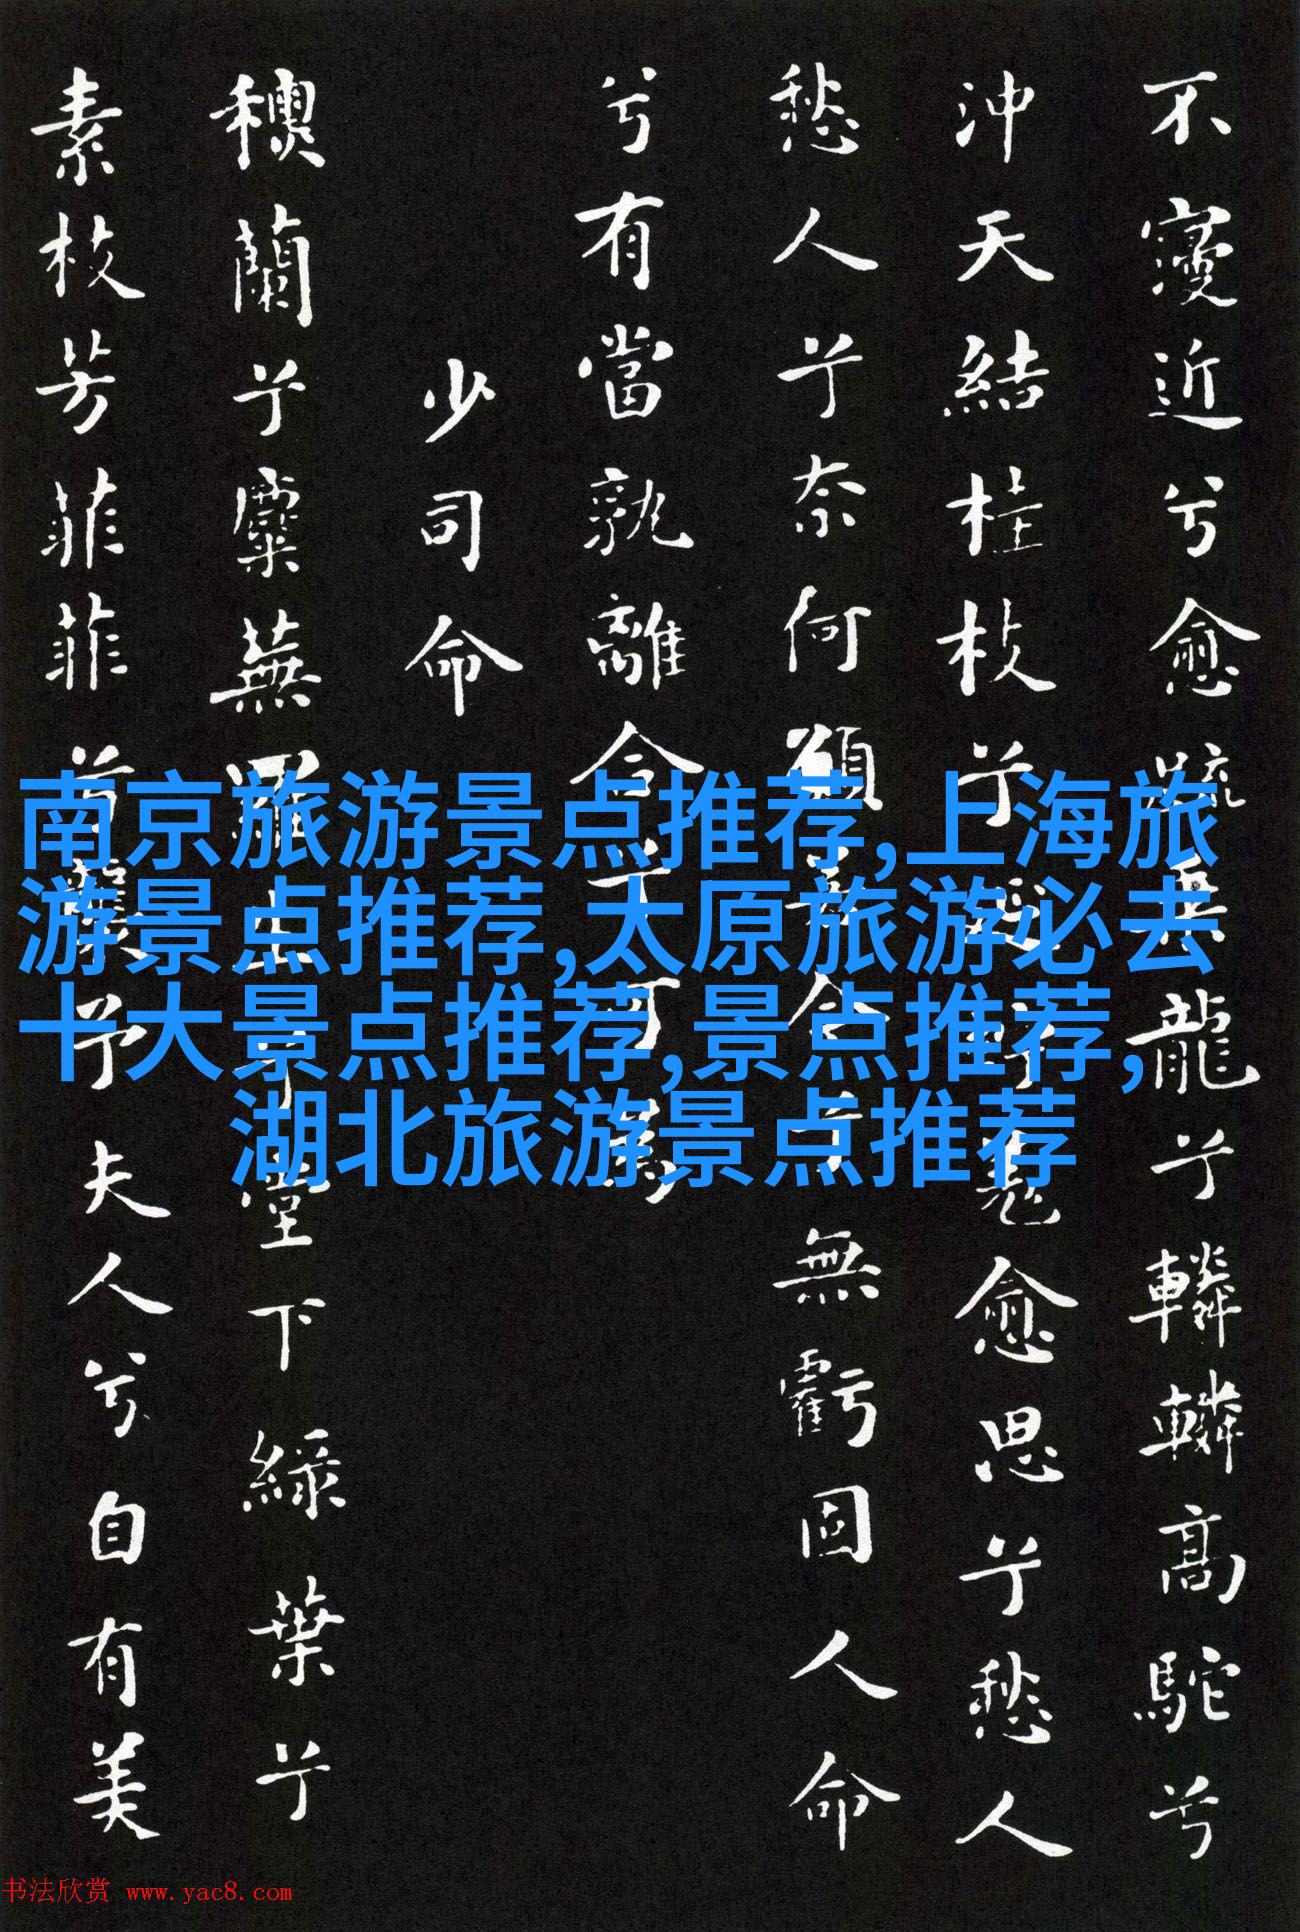 不寖近兮愈疏乘龍兮轔轔高駝兮
沖天結桂枝兮延佇羌愈思兮愁人
愁人兮奈何願若今兮無虧固人命
兮有當孰離合兮可為
少司命
穠蘭兮麋蕪羅生兮堂下綠葉兮
素枝芳菲菲兮襲予夫人兮自有美
南京旅游景点推荐,上海旅
游景点推荐,太原旅游必去
十大景点推荐,景点推荐,
湖北旅游景点推荐
书法欣赏 www.yac8.com